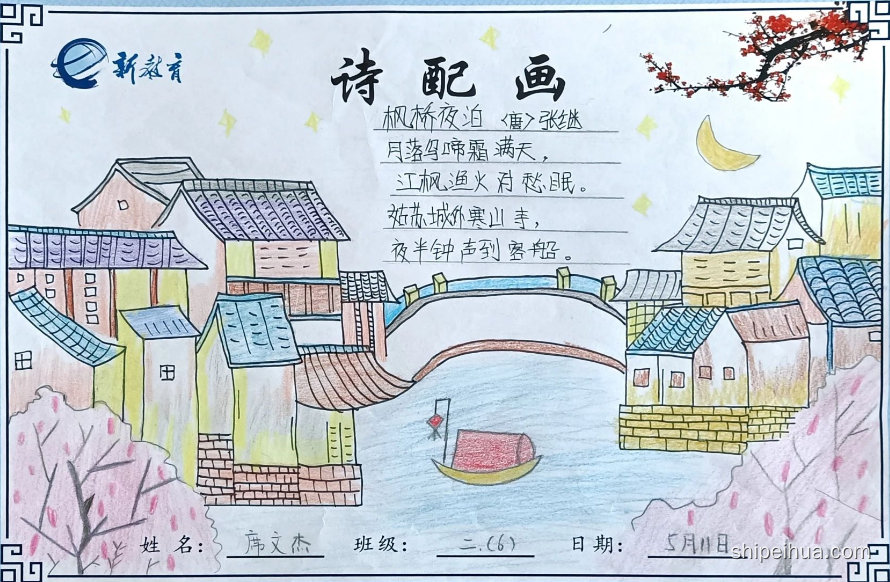 新教育
诗配画
枫桥夜泊〈唐〉张继
月落乌啼霜满天，
江枫渔火对愁眠。
姑苏城外寒山寺，
夜半钟声到客船。
姓名：席文杰 班级：二.(6) 日期：5月11日
shipeihua.com